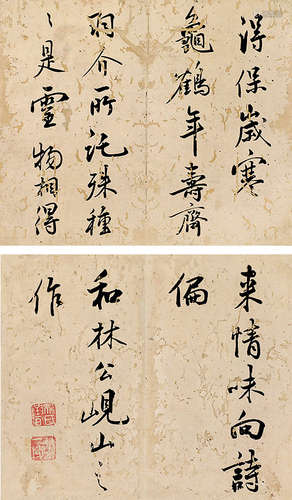 得保歲寒
龜鶴年壽齊
羽介所託殊種
〻是靈物相得
来情味向詩
偏
和林公峴山〻之
作